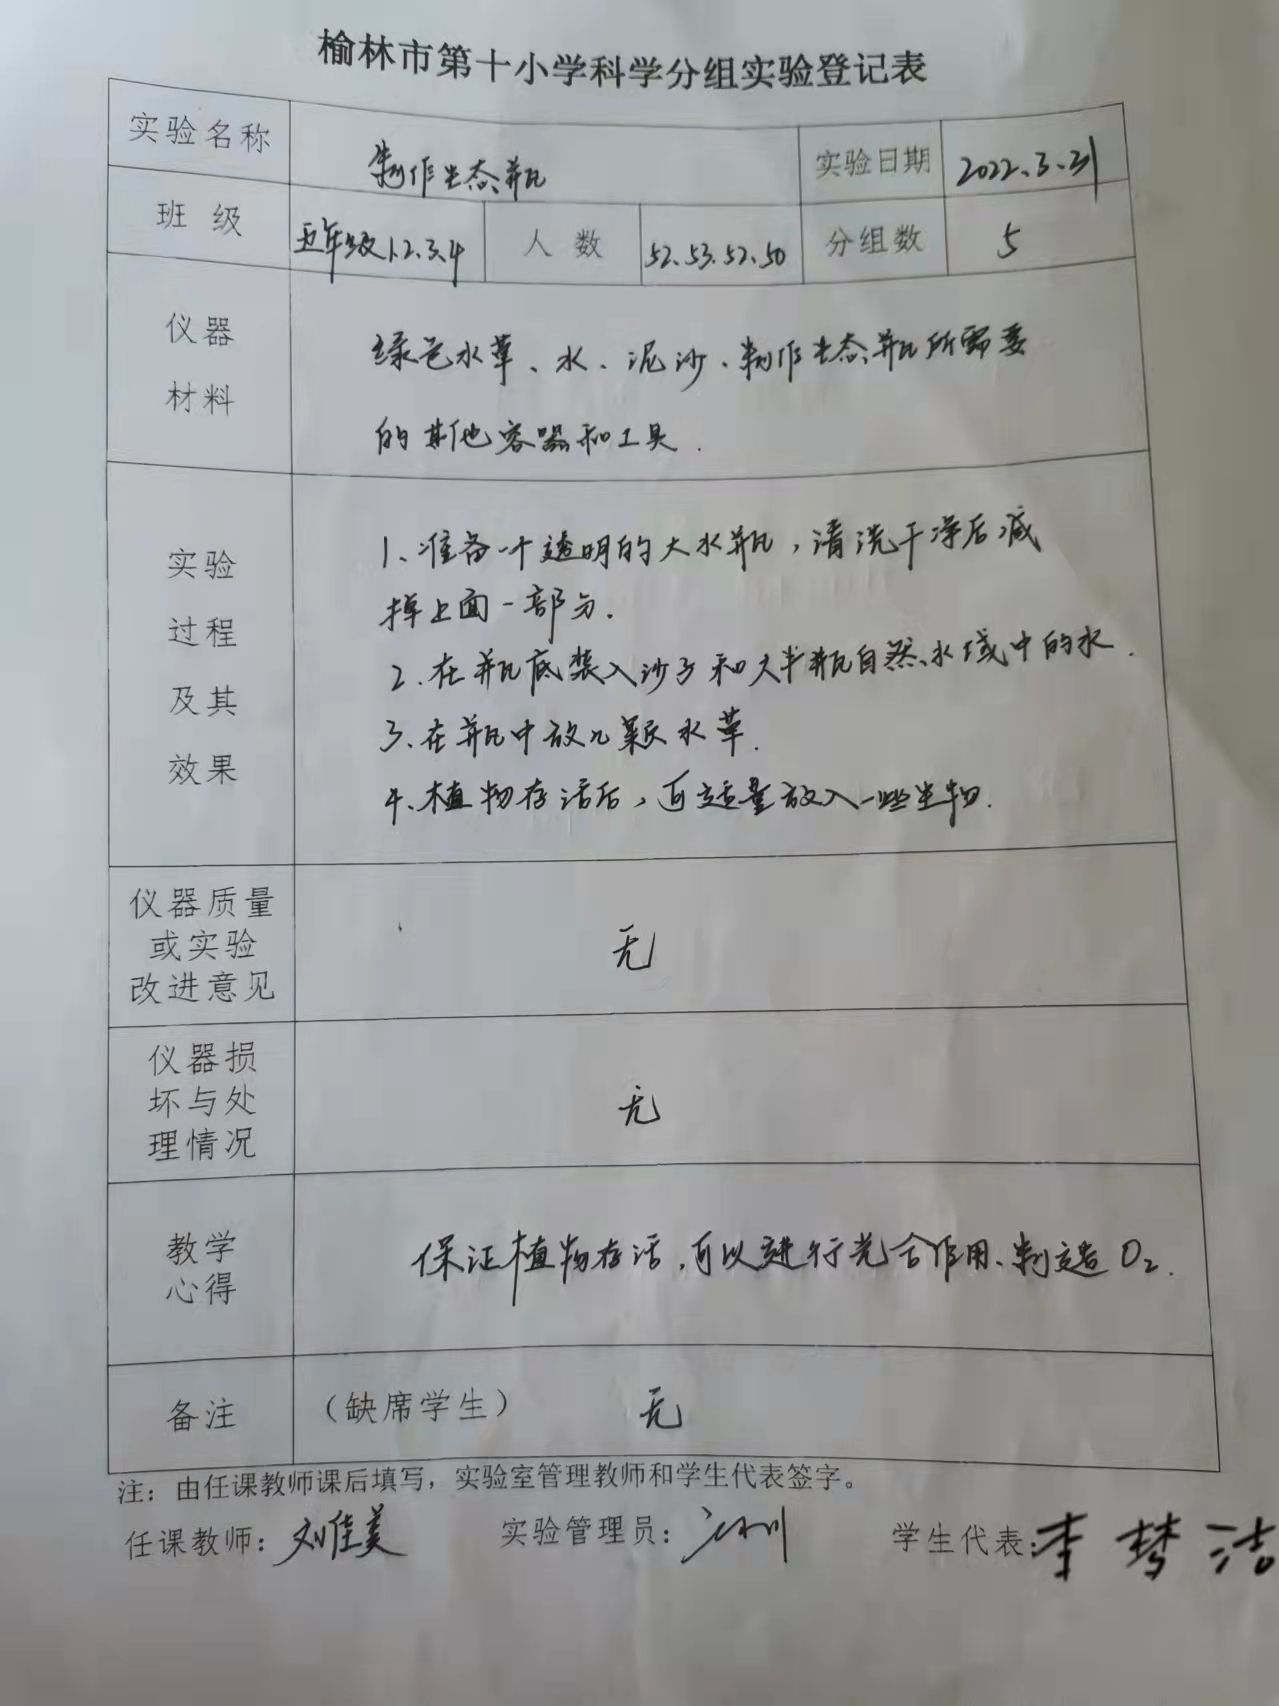 榆林市第十小学科学分组实验登记表
实验名称 制作生态瓶 实验日期 2022.3.31
班级 五年级1.2.3.4 人数 52.53.52.50 分组数 5
仪器
材料
绿色水草、水、泥沙、制作生态瓶所需要
的其他容器和工具.
实验
过程
及其
效果
1、准备一个透明的大水瓶，清洗干净后减
掉上面一部分.
2.在瓶底装入沙子和大半瓶自然水域中的水.
3、在瓶中放几颗水草.
4、植物存活后，可适量放入一些生物.
仪器质量
或实验
改进意见
无
仪器损
坏与处
理情况
无
教学
心得
保证植物存活，可以进行光合作用、制造O₂.
备注 （缺席学生） 无
注：由任课教师课后填写，实验室管理教师和学生代表签字。
任课教师：刘佳美 实验管理员： 学生代表：李梦洁